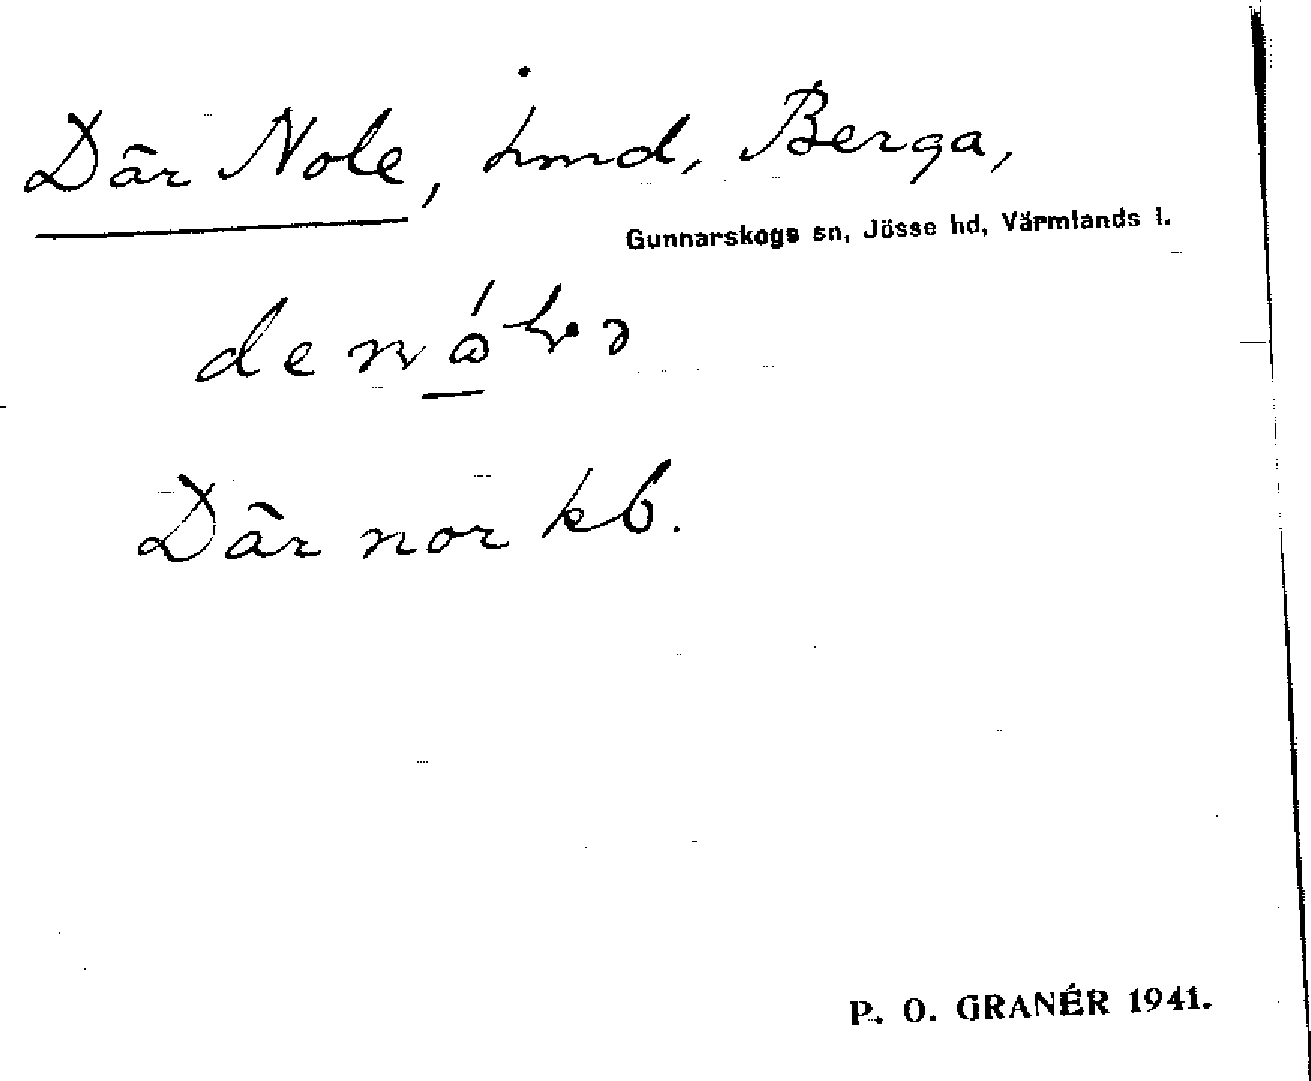 Där Nole, hmd, Berga,
Gunnarskogs sn, Jösse hd, Värmlands l.
Där nor kb.
P. O. GRANÉR 1941.